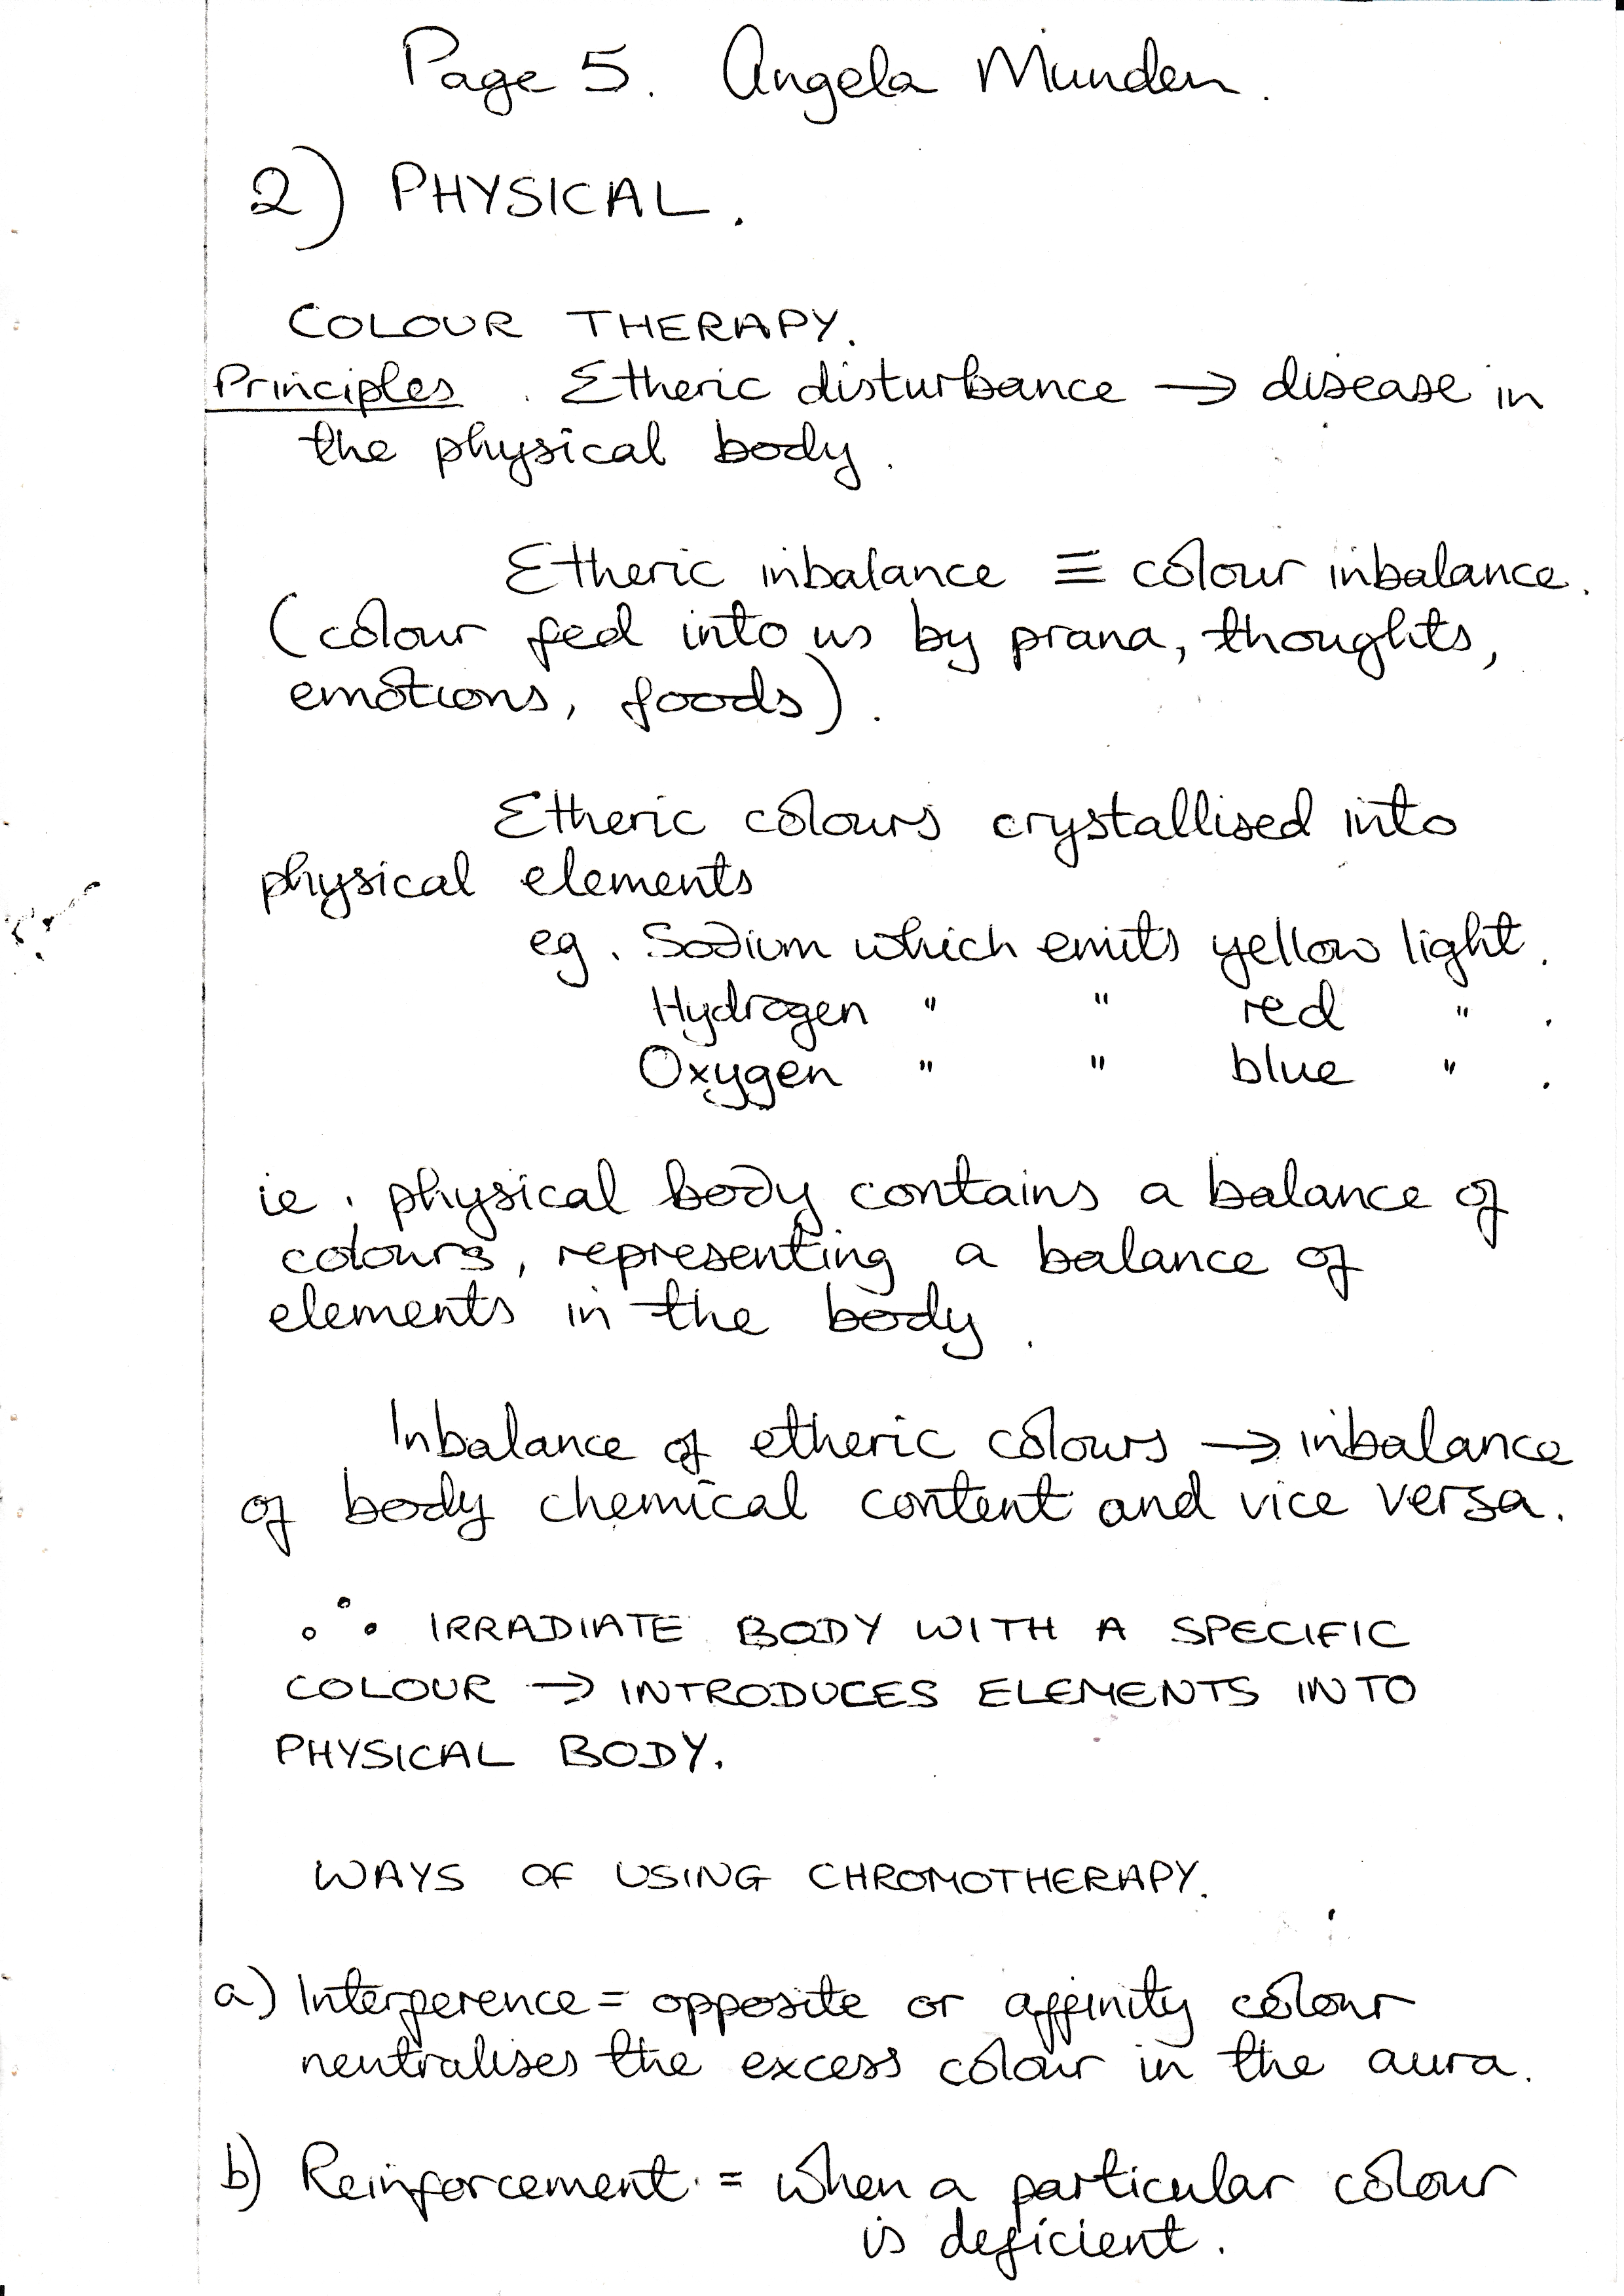 Page 5. Angela Munden.
2) PHYSICAL.
COLOUR THERAPY.
Principles. Etheric disturbance → disease in
the physical body.
Etheric inbalance ≡ colour inbalance.
(colour fed into us by prana, thoughts,
emotions, foods).
Etheric colours crystallised into
physical elements
eg. Sodium which emits yellow light.
Hydrogen " " red " .
Oxygen " " blue " .
ie. physical body contains a balance of
colours, representing a balance of
elements in the body.
Inbalance of etheric colours → inbalance
of body chemical content and vice versa.
∴ IRRADIATE BODY WITH A SPECIFIC
COLOUR → INTRODUCES ELEMENTS INTO
PHYSICAL BODY.
WAYS OF USING CHROMOTHERAPY.
a) Interference = opposite or affinity colour
neutralises the excess colour in the aura.
b) Reinforcement. = when a particular colour
is deficient.